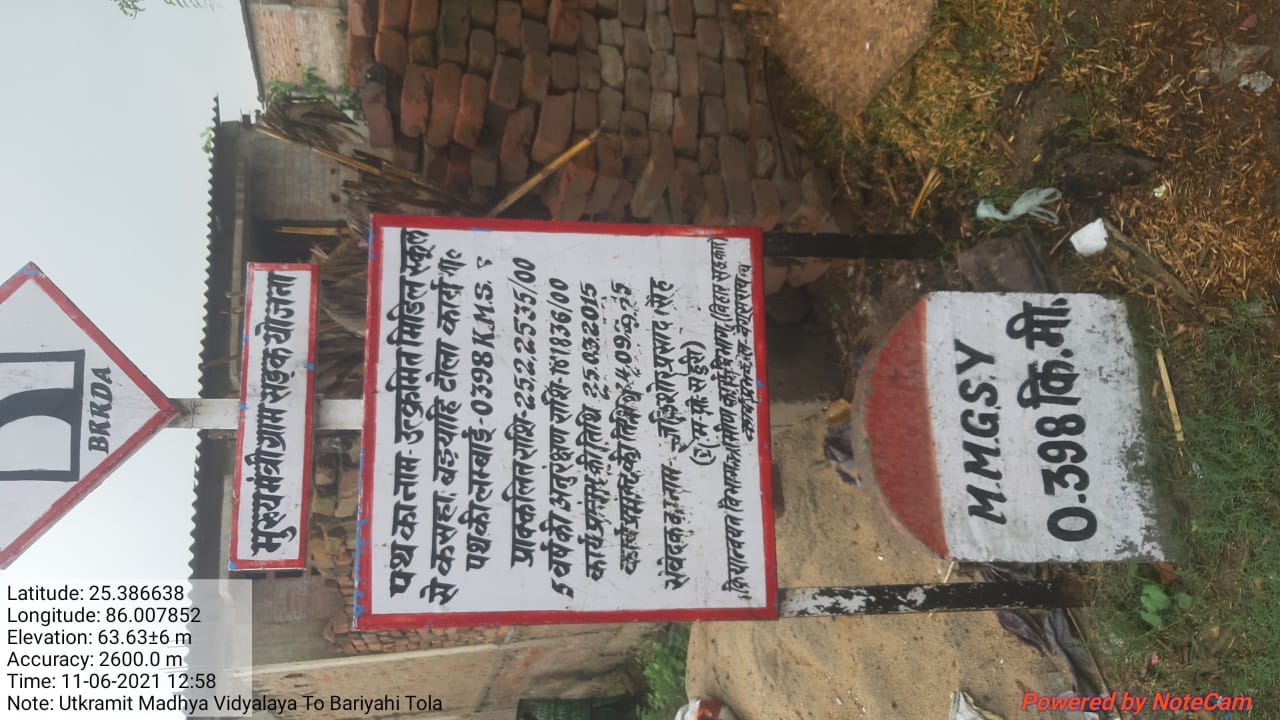 BRRDA
मुख्यमंत्री ग्राम सड़क योजना
पथ का नाम- उत्क्रमित मिडिल स्कूल
से कसहा, बड़याहि टोला कार्य
पथ की लम्बाई-0398 K.M.S.
प्राक्कलित राशि-252.22535/00
5 वर्ष की अनुरक्षण राशि-181836/00
कार्य प्रारंभ की तिथि 25.03.2015
कार्य समाप्त की तिथि
संवेदक का नाम
M.M.G.S.Y
0.398 कि.मी.
Latitude: 25.386638
Longitude: 86.007852
Elevation: 63.63±6 m
Accuracy: 2600.0 m
Time: 11-06-2021 12:58
Note: Utkramit Madhya Vidyalaya To Bariyahi Tola
Powered by NoteCam